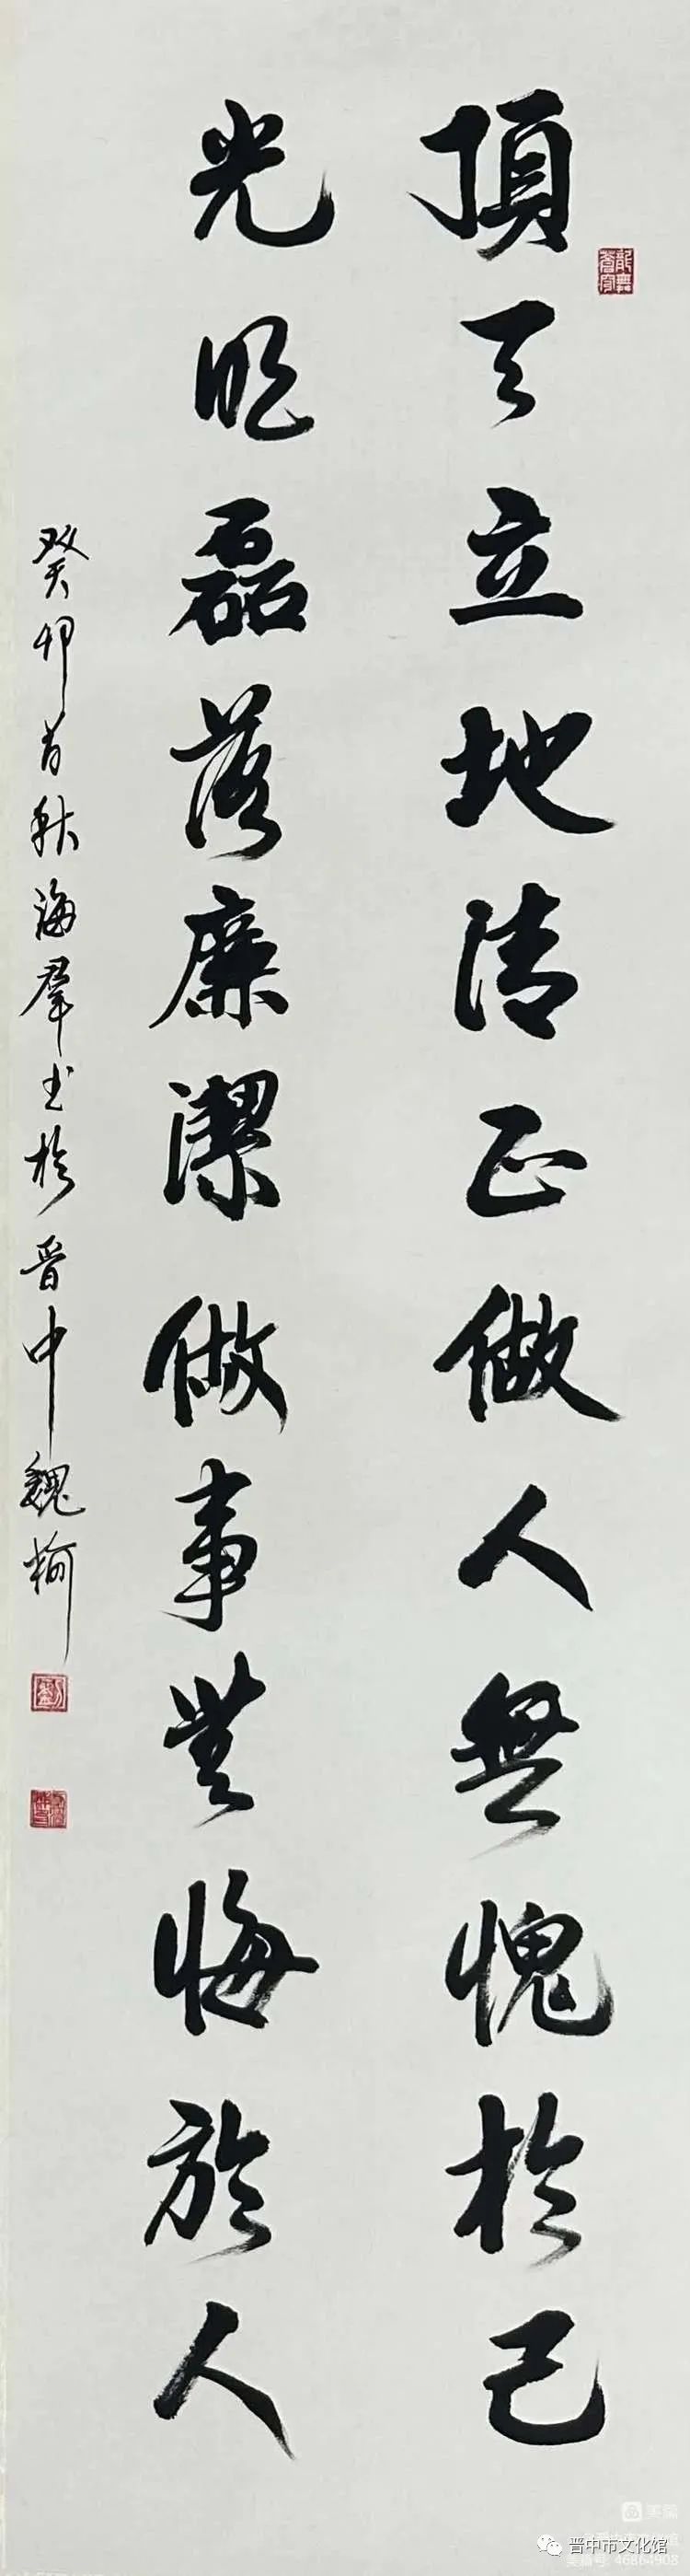 頂天立地清正做人無愧於己
光明磊落廉潔做事無悔於人
癸卯首秋海群书於晋中魏榆
晋中市文化馆
美篇号: 46864908